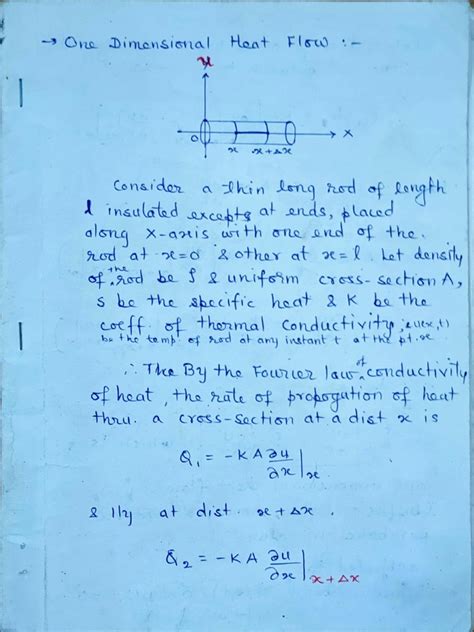 → One Dimensional Heat Flow :-
u
O x x+Δx X
Consider a thin long rod of length
l insulated excepts at ends, placed
along X-axis with one end of the
rod at x=0 & other at x=l. Let density
of the rod be ρ & uniform cross-section A,
s be the specific heat & K be the
coeff. of thermal conductivity, u(x,t)
be the temp of rod at any instant t at the pt. x
∴ The By the Fourier law of conductivity
of heat, the rate of propogution of heat
thru. a cross-section at a dist x is
Q₁ = -KA ∂u/∂x |x
& lly at dist. x+Δx.
Q₂ = -KA ∂u/∂x |x+Δx